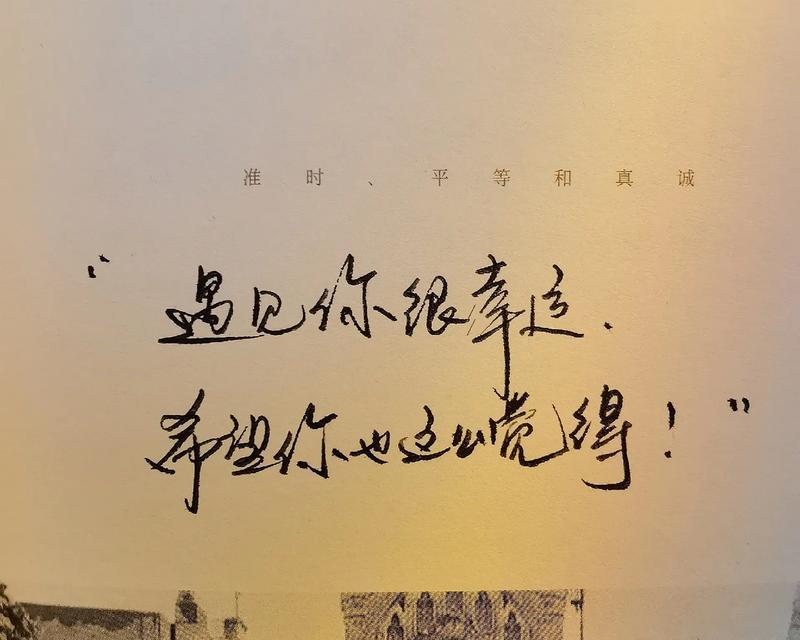 准时、平等和真诚
“遇见你很幸运.
希望你也这么觉得！”